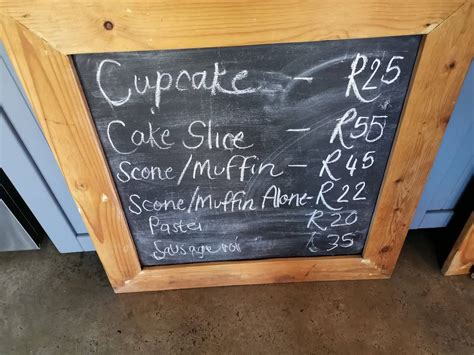 Cupcake - R25
Cake Slice - R55
Scone/Muffin - R45
Scone/Muffin Alone - R22
Pastei R20
Sausage roll R35